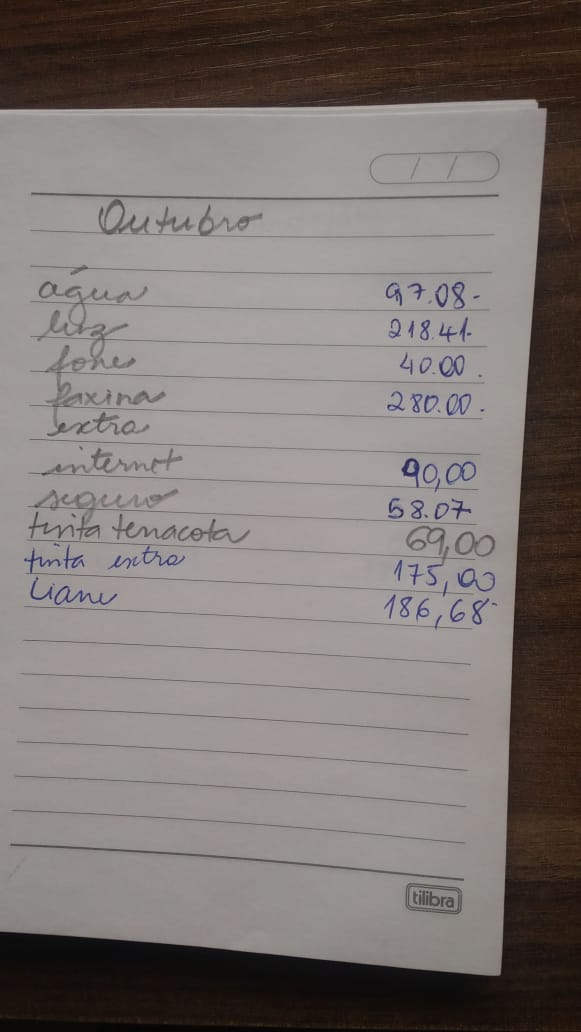 / /
Outubro
água 97.08-
luz 218.41-
fone 40.00.
faxina 280.00.
extra
internet 90,00
seguro 58.07
tinta tenacota 69,00
tinta extra 175,00
Liane 186,68-
tilibra